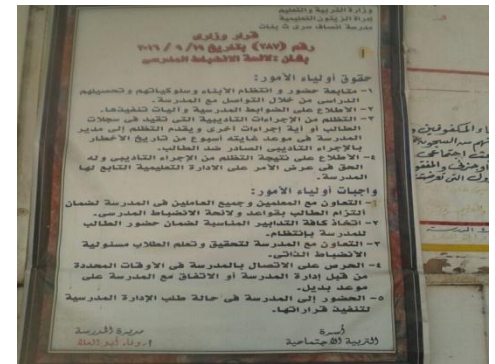 وزارة التربية والتعليم
إدارة الزيتون التعليمية
مدرسة انصاف سرى ث بنات
قرار وزارى
رقم (٢٨٧) بتاريخ ١٩ / ٩ / ٢٠١٦
بشأن :لائحة الانضباط المدرسى
حقوق أولياء الأمور:
١- متابعة حضور و انتظام الأبناء وسلوكياتهم وتحصيلهم
الدراسى من خلال التواصل مع المدرسة.
٢- الاطلاع على الضوابط المدرسية و آليات تنفيذها.
٣- التظلم من الإجراءات التأديبية التى تقيد فى سجلات
الطالب أو أية إجراءات أخرى ويقدم التظلم إلى مدير
المدرسة فى موعد غايته أسبوع من تاريخ الأخطار
بالإجراء التأديبى الصادر ضد الطالب.
٤- الاطلاع على نتيجة التظلم من الإجراء التأديبى وله
الحق فى عرض الأمر على الادارة التعليمية التابع لها
المدرسة.
واجبات أولياء الأمور:
١- التعاون مع المعلمين وجميع العاملين فى المدرسة لضمان
ألتزام الطالب بقواعد ولائحة الانضباط المدرسى.
٢- اتخاذ كافة التدابير المناسبة لضمان حضور الطالب
للمدرسة بإنتظام.
٣- التعاون مع المدرسة لتحقيق وتعلم الطلاب مسئولية
الانضباط الذاتى.
٤- الحرص على الاتصال بالمدرسة فى الأوقات المحددة
من قبل إدارة المدرسة أو الاتفاق مع المدرسة على
موعد بديل.
٥- الحضور إلى المدرسة فى حالة طلب الإدارة المدرسية
لتنفيذ قراراتها.
أسرة
التربية الاجتماعية
مديرة المدرسة
أ/وفاء أبو العلا